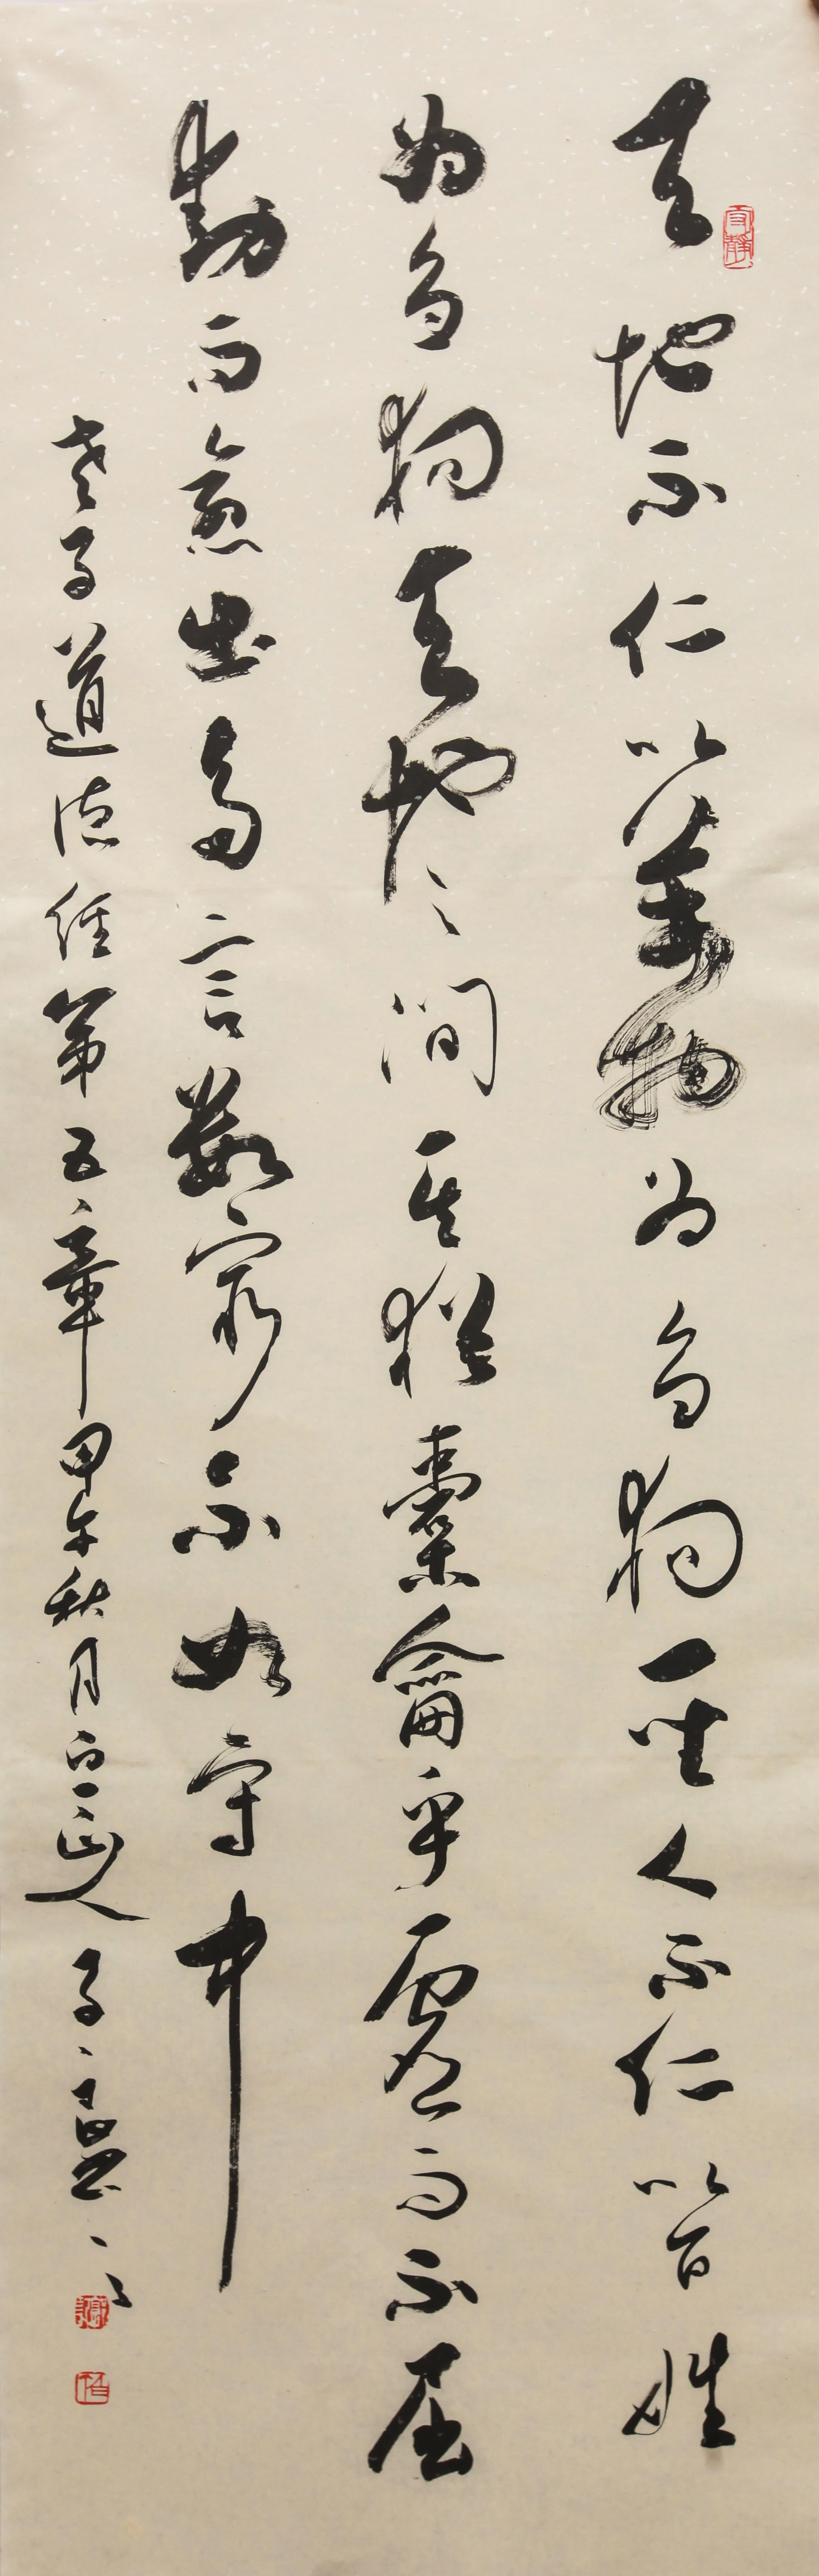 天地不仁以萬物为芻狗聖人不仁以百姓
为芻狗天地之间其猶橐龠乎虛而不屈
動而愈出多言数窮不如守中
老子道德经第五章甲午秋月